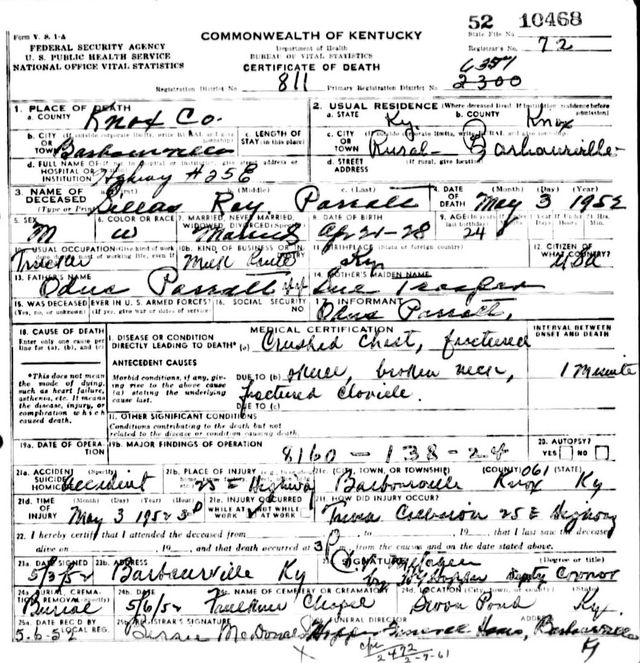 Form V. S. 1-A
52 10468
COMMONWEALTH OF KENTUCKY
State File No.
FEDERAL SECURITY AGENCY
Department of Health
Registrar's No. 72
U. S. PUBLIC HEALTH SERVICE
BUREAU OF VITAL STATISTICS
NATIONAL OFFICE VITAL STATISTICS
CERTIFICATE OF DEATH
6357
Registration District No. 811
Primary Registration District No. 2300
1. PLACE OF DEATH
a. COUNTY Knox Co.
2. USUAL RESIDENCE (Where deceased lived. If institution: residence before admission)
a. STATE Ky b. COUNTY Knox
b. CITY OR TOWN Barbourville
c. LENGTH OF STAY (in this place)
c. CITY OR TOWN Rural - Barbourville
d. FULL NAME OF HOSPITAL OR INSTITUTION Highway #25E
d. STREET ADDRESS (If rural, give location)
3. NAME OF DECEASED (Type or Print)
(Middle) Ray
c. (Last)
4. DATE OF DEATH (Month) (Day) (Year) May 3 1952
5. SEX M
6. COLOR OR RACE W
7. MARRIED, NEVER MARRIED, WIDOWED, DIVORCED (Specify)
8. DATE OF BIRTH Ap 21-28
9. AGE 24
10a. USUAL OCCUPATION Trucker
10b. KIND OF BUSINESS OR INDUSTRY Milk Route
11. BIRTHPLACE (State or foreign country) Ky
12. CITIZEN OF WHAT COUNTRY? USA
13. FATHER'S NAME
14. MOTHER'S MAIDEN NAME
15. WAS DECEASED EVER IN U. S. ARMED FORCES?
(Yes, no, or unknown) (If yes, give war or dates of service)
16. SOCIAL SECURITY NO.
17. INFORMANT
18. CAUSE OF DEATH
Enter only one cause per line for (a), (b), and (c)
MEDICAL CERTIFICATION
INTERVAL BETWEEN ONSET AND DEATH
I. DISEASE OR CONDITION DIRECTLY LEADING TO DEATH* (a) Crushed Chest, fractured
*This does not mean the mode of dying, such as heart failure, asthenia, etc. It means the disease, injury, or complication which caused death.
ANTECEDENT CAUSES
Morbid conditions, if any, giving rise to the above cause (a) stating the underlying cause last.
DUE TO (b) skull, broken neck, 1 Minute
fractured clavicle.
DUE TO (c)
II. OTHER SIGNIFICANT CONDITIONS
Conditions contributing to the death but not related to the disease or condition causing death.
19a. DATE OF OPERATION
19b. MAJOR FINDINGS OF OPERATION
8160 - 138 - 24
20. AUTOPSY?
YES NO
21a. ACCIDENT SUICIDE HOMICIDE (Specify) accident
21b. PLACE OF INJURY Highway
21c. (CITY, TOWN, OR TOWNSHIP) (COUNTY) 061 (STATE)
Barbourville Knox Ky
21d. TIME OF INJURY (Month) (Day) (Year) (Hour) May 3 1952
21e. INJURY OCCURRED
WHILE AT WORK NOT WHILE AT WORK
21f. HOW DID INJURY OCCUR?
Collision 25 E Highway
22. I hereby certify that I attended the deceased from , 19 , to , 19 , that I last saw the deceased
alive on , 19 , and that death occurred at 3 P m., from the causes and on the date stated above.
23a. DATE SIGNED 5/3/52
23b. ADDRESS Barbourville Ky
SIGNATURE (Degree or title)
Deputy Coroner
24a. BURIAL, CREMATION, REMOVAL (Specify) Burial
24b. DATE 5/6/52
24c. NAME OF CEMETERY OR CREMATORY Faulkner Chapel
24d. LOCATION (City, town, or county) (State) Pond Ky.
25a. DATE REC'D BY LOCAL REG. 5-6-52
REGISTRAR'S SIGNATURE McDonald
FUNERAL DIRECTOR Hopper Funeral Home, Barbourville
Ky
2472
2-9-61